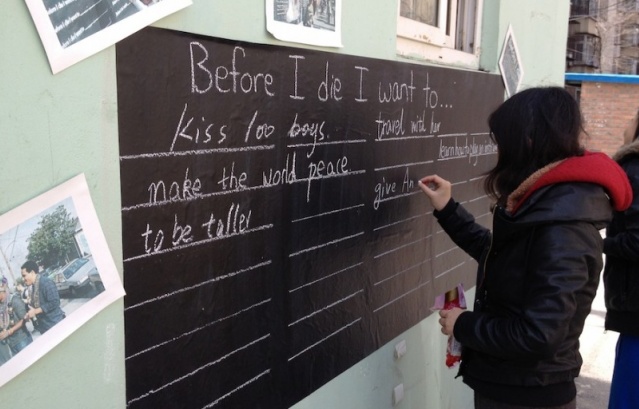 Before I die I want to...
Kiss 100 boys.
make the world peace
to be taller
travel with her
learn how to
give An